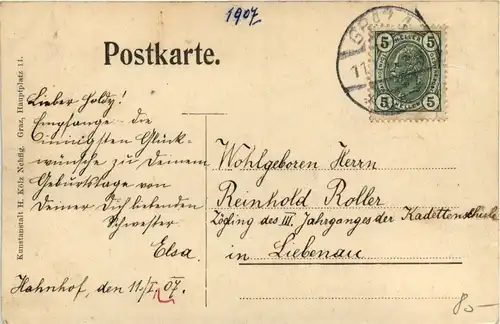 1907
Postkarte.
GRAZ 1
11.
5 HELLER 5
5 HELLER 5
Kunstanstalt H. Kölz Nchflg. Graz, Hauptplatz 11.
Lieber Holdy!
Empfange die
innigsten Glück-
wünsche zu Deinem
Geburtstage von
Deiner Dich liebenden
Schwester
Elsa.
Hahnhof, den 11./I. 07.
Wohlgeboren Herrn
Reinhold Roller
Zögling des III. Jahrganges der Kadettenschule
in Liebenau
80-